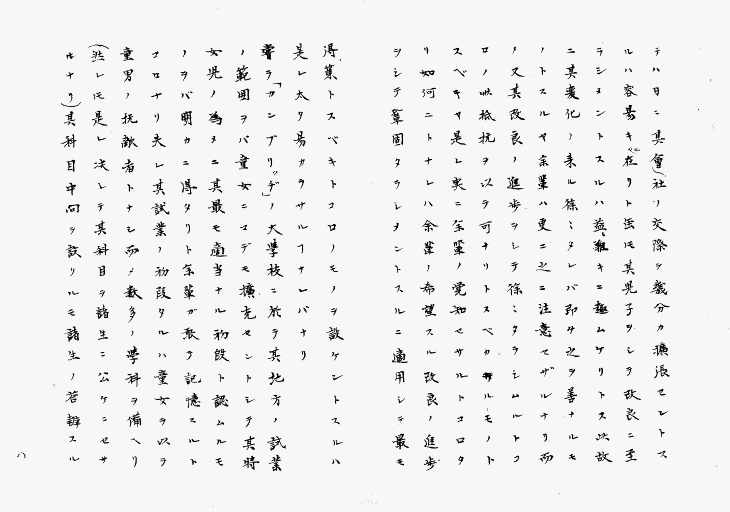 テハ日ニ其會(社)ノ交際ヲ幾分カ擴張セントス
ルハ容易キニ在リト雖モ其児子ヲシテ改良ニ至
ラシメントスルハ益難キニ極ムケリトス以故
ニ其変化ノ来ル徐ミタレバ即タ之ヲ善ナルモ
ノトスルヤ余輩ハ更ニ之ニ注意セザルナリ而
ノ又其改良ノ進歩ヲシテ徐ミタラシムルトコ
ロノ抵抗ヲ以テ可ナリトスベカルモノト
スベキヤ是レ実ニ余輩ノ覚知セサルトコロタ
リ如何ニトナレハ余輩ノ希望スル改良ノ進歩
ヲシテ鞏固タラシメントスルニ適用シテ最モ
得策トスベキトコロノモノヲ設ケントスルハ
是レ太タ易カラサルフナレバナリ
ラ「カンブリッヂ」ノ大學校ニ於テ其地方ノ試業
ノ範囲ヲバ童女ニマデモ擴充セントシテ其時
女児ノ為メニ其最モ適当ナル初段ト認ムルモ
ノヲバ明カニ得タリト余輩ガ教テ記憶スルト
コロナリ夫レ其試業ノ初段タルハ童女ヲ以テ
童男ノ抗敵者トナシ而メ数多ノ學科ヲ備ヘリ
(然レモ是レ決シテ其科目ヲ諸生ニ公ケニセサ
ルナリ)其科目中向ヲ設リルモ諸生ノ答辯スル
八